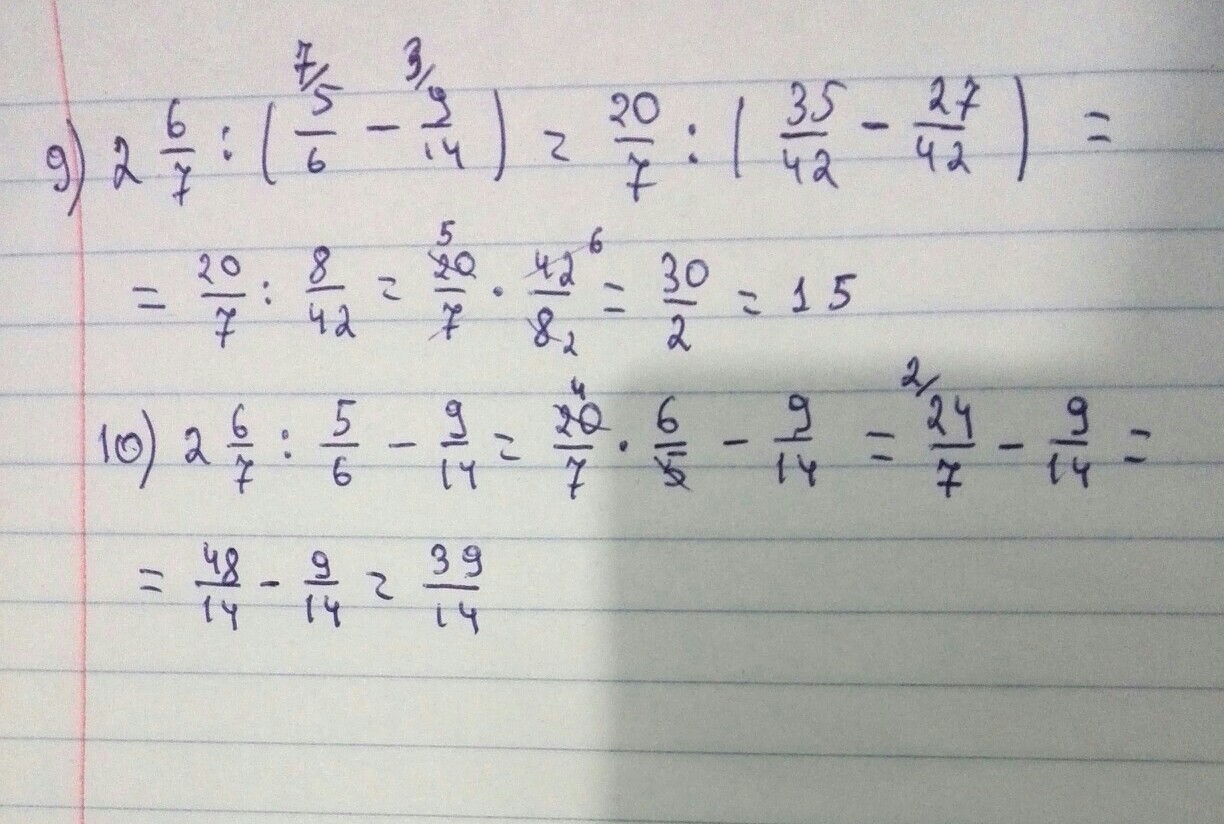 9) 2 6/7 : (7/ 5/6 − 3/ 9/14) = 20/7 : (35/42 − 27/42) =
= 20/7 : 8/42 = 20 5/7 · 42 6/8 2 = 30/2 = 15
10) 2 6/7 : 5/6 − 9/14 = 20 4/7 · 6/5 − 9/14 = 2/ 24/7 − 9/14 =
= 48/14 − 9/14 = 39/14